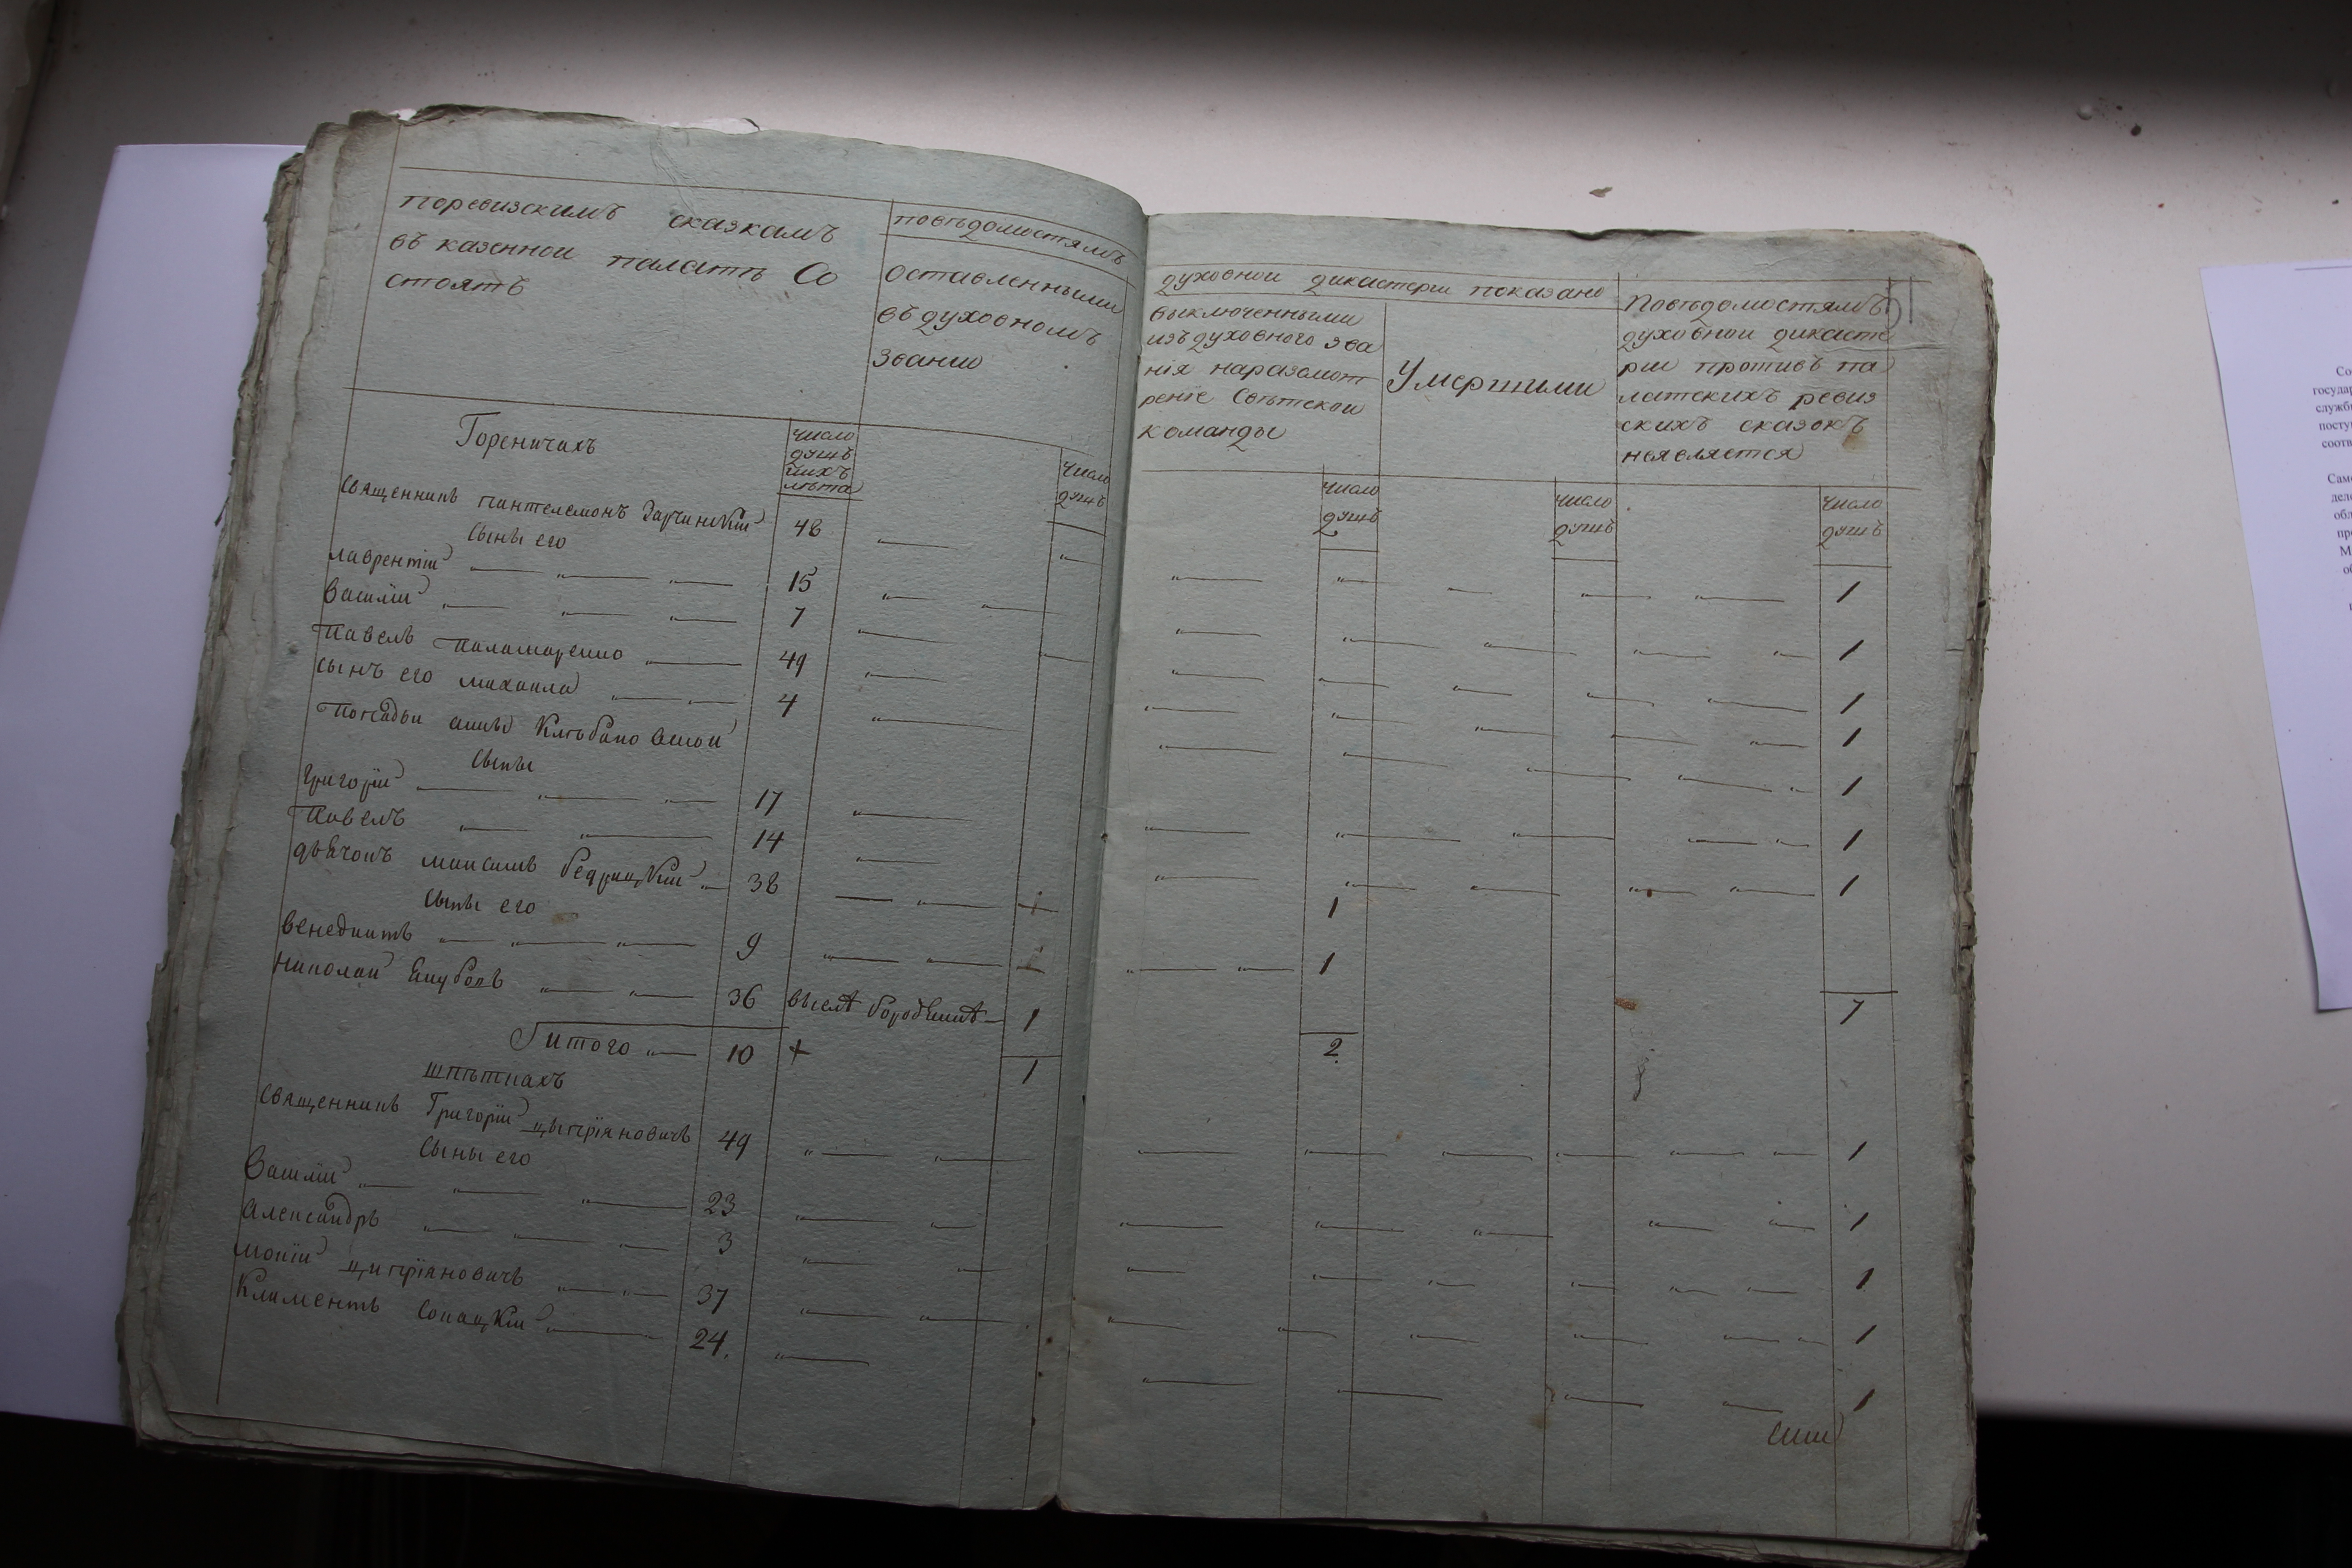 поревизскимъ сказкамъ
въ казеннои палатѣ Со
стоятъ
повѣдомостямъ
оставленными
въ духовномъ
звании
духовнои дикастерии показано
выключенными
изъ духовного зва
нія наразсмот
реніе Свѣтскои
команды
Умершими
Повѣдомостямъ
духовнои дикасте
рии противъ па
латскихъ ревиз
скихъ сказокъ
неявляется
Гореничахъ
число
душъ
ихъ
лѣта
число
душъ
число
душъ
число
душъ
число
душъ
Священникъ пантелемонъ 48
Сыны его
лаврентіи 15 1
Василіи 7 1
Павелъ Паламаренко 49 1
сынъ его михаила 4 1
Попадьи анны
Сыны
Григоріи 17 1
Павелъ 14 1
дьячокъ максимъ бедрицкіи 38 1
Сыны его
венедиктъ 9 1
николаи 36 въселѣ бородянкѣ 1
7
Итого 10 + 1 2
шпѣткахъ
Священникъ Григоріи цыпріяновичъ 49 1
Сыны его
Василіи 23 1
Александръ 3 1
мокіи ципріяновичъ 37 1
Климентъ 24. 1